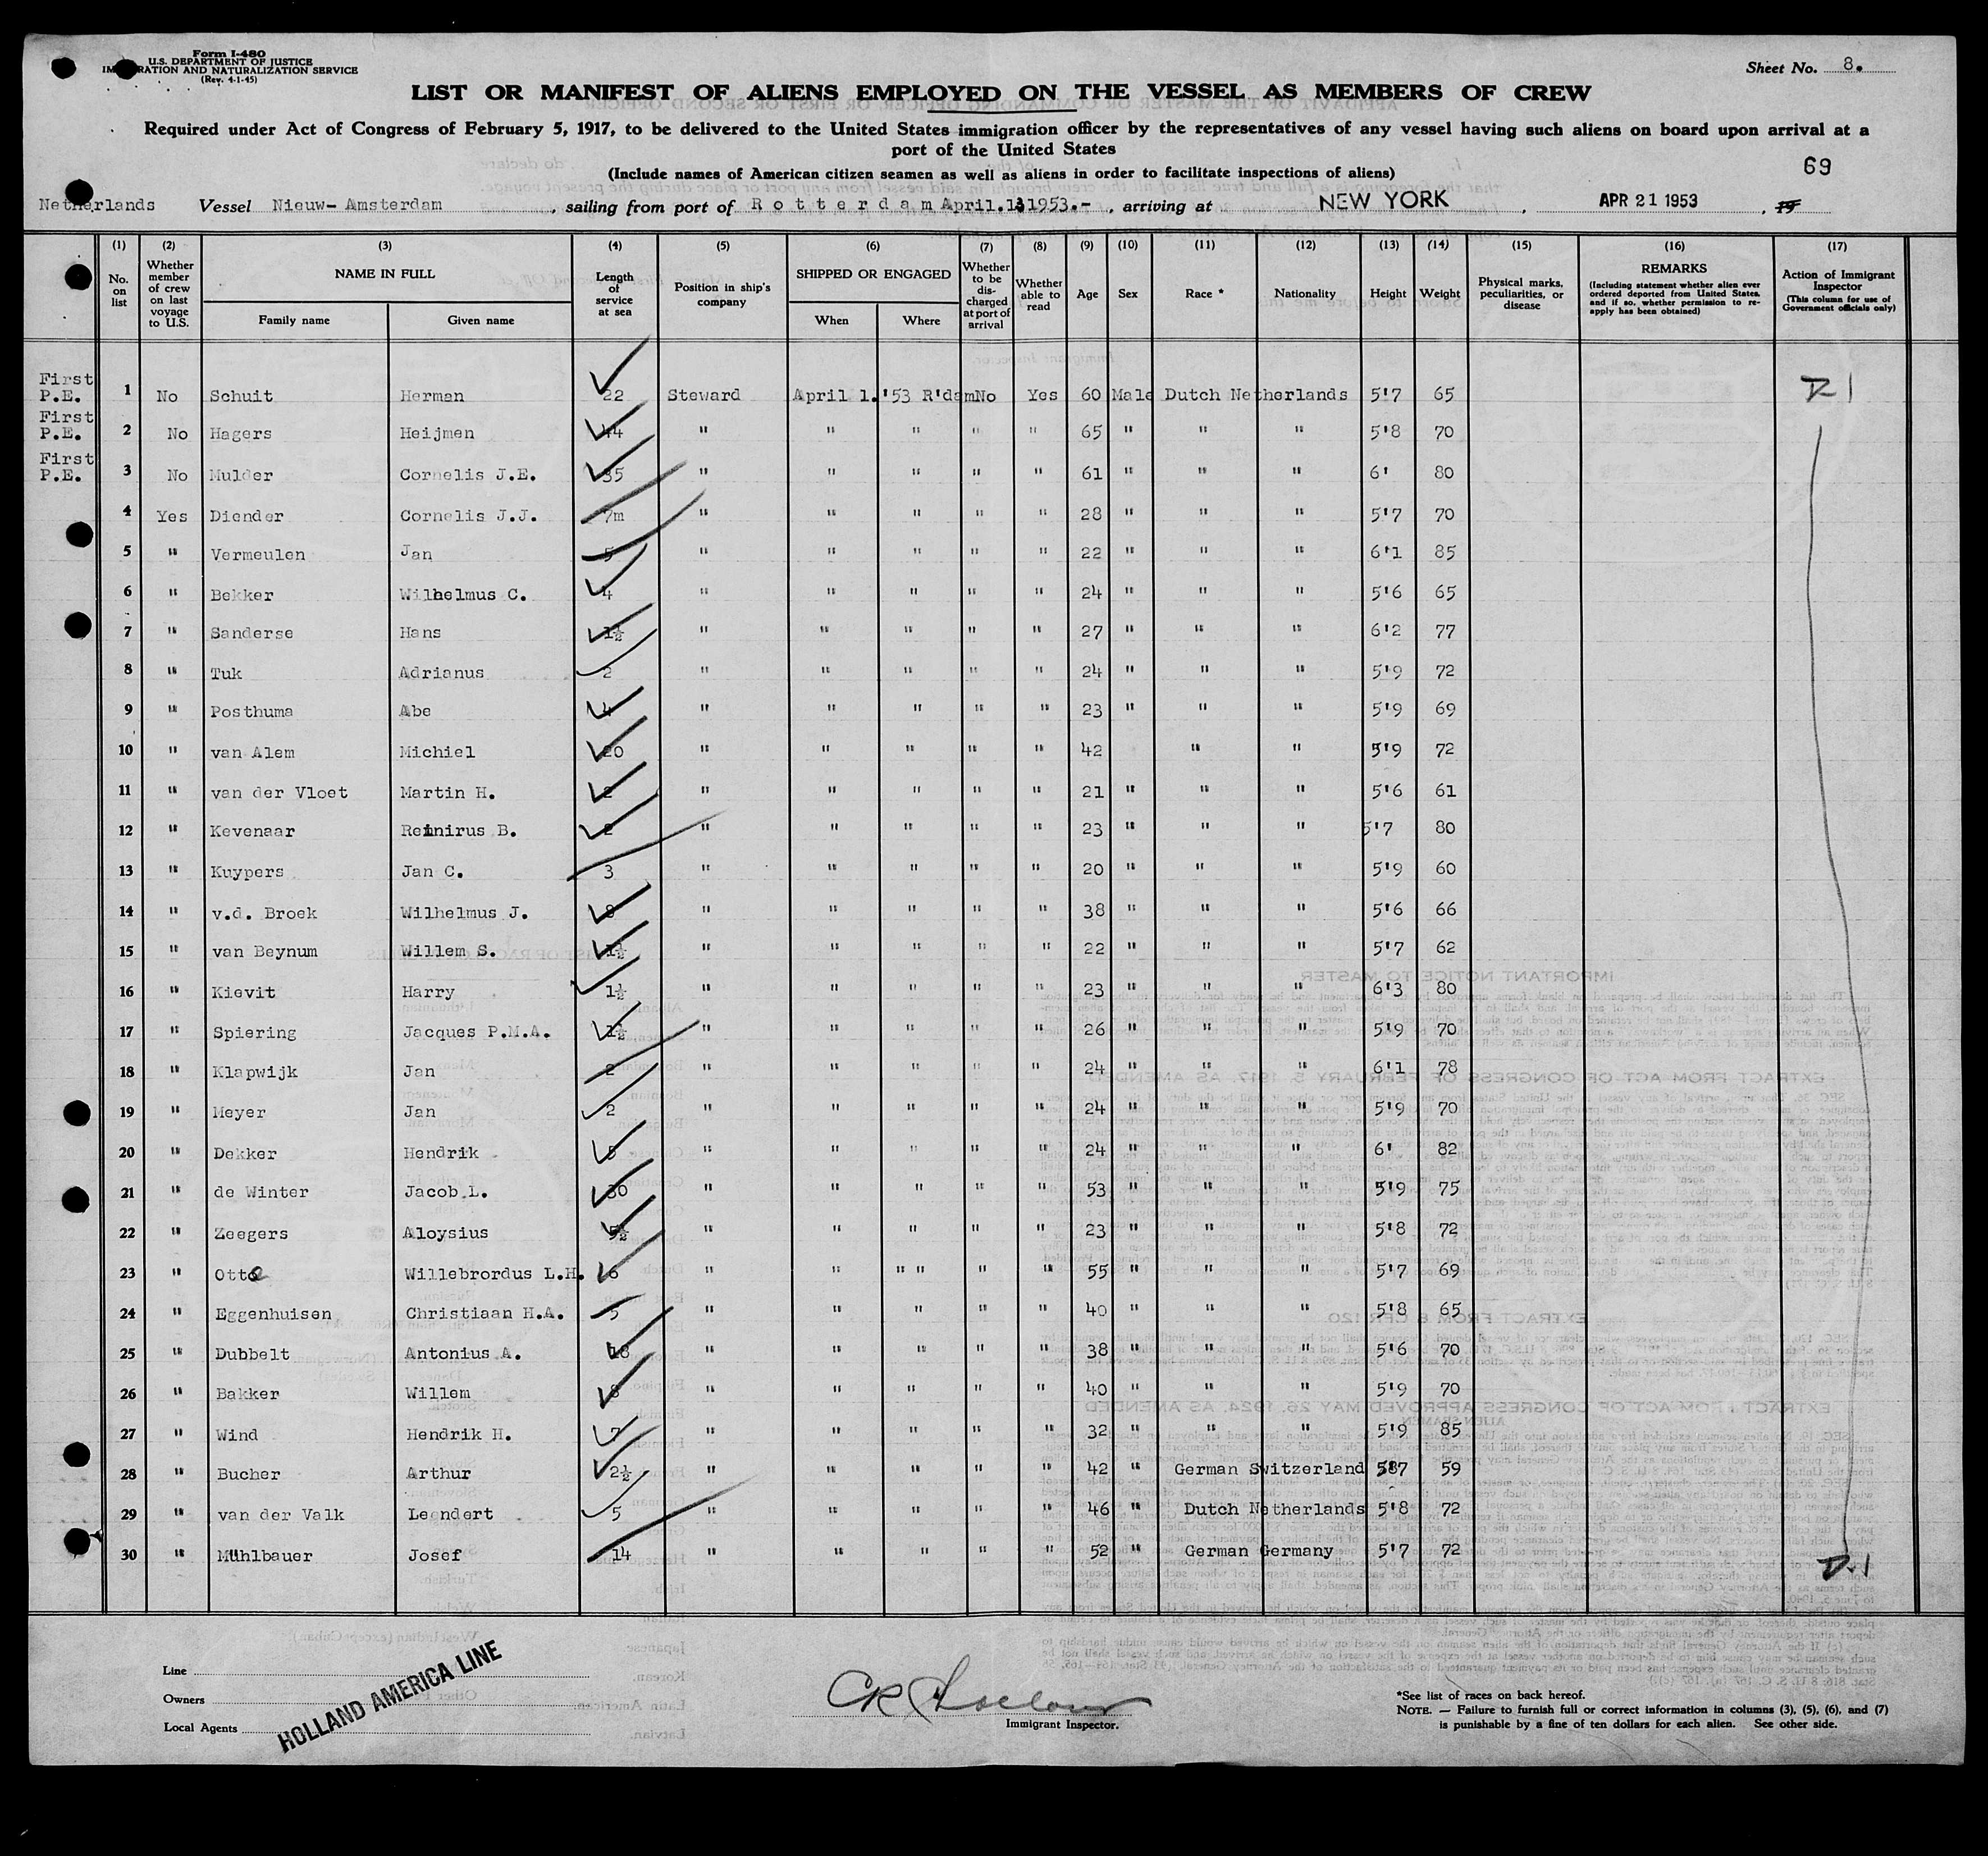 Form I-480
U.S. DEPARTMENT OF JUSTICE
IMMIGRATION AND NATURALIZATION SERVICE
(Rev. 4-1-45)
Sheet No. 8.
LIST OR MANIFEST OF ALIENS EMPLOYED ON THE VESSEL AS MEMBERS OF CREW
Required under Act of Congress of February 5, 1917, to be delivered to the United States immigration officer by the representatives of any vessel having such aliens on board upon arrival at a
port of the United States
(Include names of American citizen seamen as well as aliens in order to facilitate inspections of aliens)
69
Netherlands Vessel Nieuw-Amsterdam, sailing from port of Rotterdam April. 1953.-, arriving at NEW YORK, APR 21 1953, 19
(1) (2) (3) (4) (5) (6) (7) (8) (9) (10) (11) (12) (13) (14) (15) (16) (17)
No. on list
Whether member of crew on last voyage to U.S.
NAME IN FULL
Family name Given name
Length of service at sea
Position in ship's company
SHIPPED OR ENGAGED
When Where
Whether to be discharged at port of arrival
Whether able to read
Age
Sex
Race *
Nationality
Height
Weight
Physical marks, peculiarities, or disease
REMARKS
(Including statement whether alien ever ordered deported from United States, and if so, whether permission to re-apply has been obtained)
Action of Immigrant Inspector
(This column for use of Government officials only)
First P.E. 1 No Schuit Herman 22 Steward April 1.'53 R'dam No Yes 60 Male Dutch Netherlands 5'7 65 D-1
First P.E. 2 No Hagers Heijmen 44 " " " " " 65 " " " 5'8 70
First P.E. 3 No Mulder Cornelis J.E. 35 " " " " " 61 " " " 6' 80
4 Yes Diender Cornelis J.J. 7m " " " " " 28 " " " 5'7 70
5 " Vermeulen Jan 5 " " " " " 22 " " " 6'1 85
6 " Bekker Wilhelmus C. 4 " " " " " 24 " " " 5'6 65
7 " Sanderse Hans 1½ " " " " " 27 " " " 6'2 77
8 " Tuk Adrianus 2 " " " " " 24 " " " 5'9 72
9 " Posthuma Abe 4 " " " " " 23 " " " 5'9 69
10 " van Alem Michiel 20 " " " " " 42 " " 5'9 72
11 " van der Vloet Martin H. 2 " " " " " 21 " " " 5'6 61
12 " Kevenaar Reinirus B. 2 " " " " " 23 " " " 5'7 80
13 " Kuypers Jan C. 3 " " " " " 20 " " " 5'9 60
14 " v.d. Broek Wilhelmus J. 8 " " " " " 38 " " " 5'6 66
15 " van Beynum Willem S. 1½ " " " " " 22 " " " 5'7 62
16 " Kievit Harry 1½ " " " " " 23 " " " 6'3 80
17 " Spiering Jacques P.M.A. 1½ " " " " " 26 " " " 5'9 70
18 " Klapwijk Jan 2 " " " " " 24 " " " 6'1 78
19 " Meyer Jan 2 " " " " " 24 " " " 5'9 70
20 " Dekker Hendrik 5 " " " " " 24 " " " 6' 82
21 " de Winter Jacob L. 30 " " " " " 53 " " " 5'9 75
22 " Zeegers Aloysius 5½ " " " " " 23 " " " 5'8 72
23 " Otto Willebrordus L.H. 6 " " " " " " 55 " " " 5'7 69
24 " Eggenhuisen Christiaan H.A. 5 " " " " " 40 " " " 5'8 65
25 " Dubbelt Antonius A. 18 " " " " " 38 " " " 5'6 70
26 " Bakker Willem 8 " " " " " 40 " " " 5'9 70
27 " Wind Hendrik H. 7 " " " " " 32 " " " 5'9 85
28 " Bucher Arthur 2½ " " " " " 42 " German Switzerland 5'7 59
29 " van der Valk Leendert 5 " " " " " 46 " Dutch Netherlands 5'8 72
30 " Mühlbauer Josef 14 " " " " " 52 " German Germany 5'7 72 D-1
Line
Owners
Local Agents
HOLLAND AMERICA LINE
Immigrant Inspector.
*See list of races on back hereof.
NOTE. — Failure to furnish full or correct information in columns (3), (5), (6), and (7)
is punishable by a fine of ten dollars for each alien. See other side.